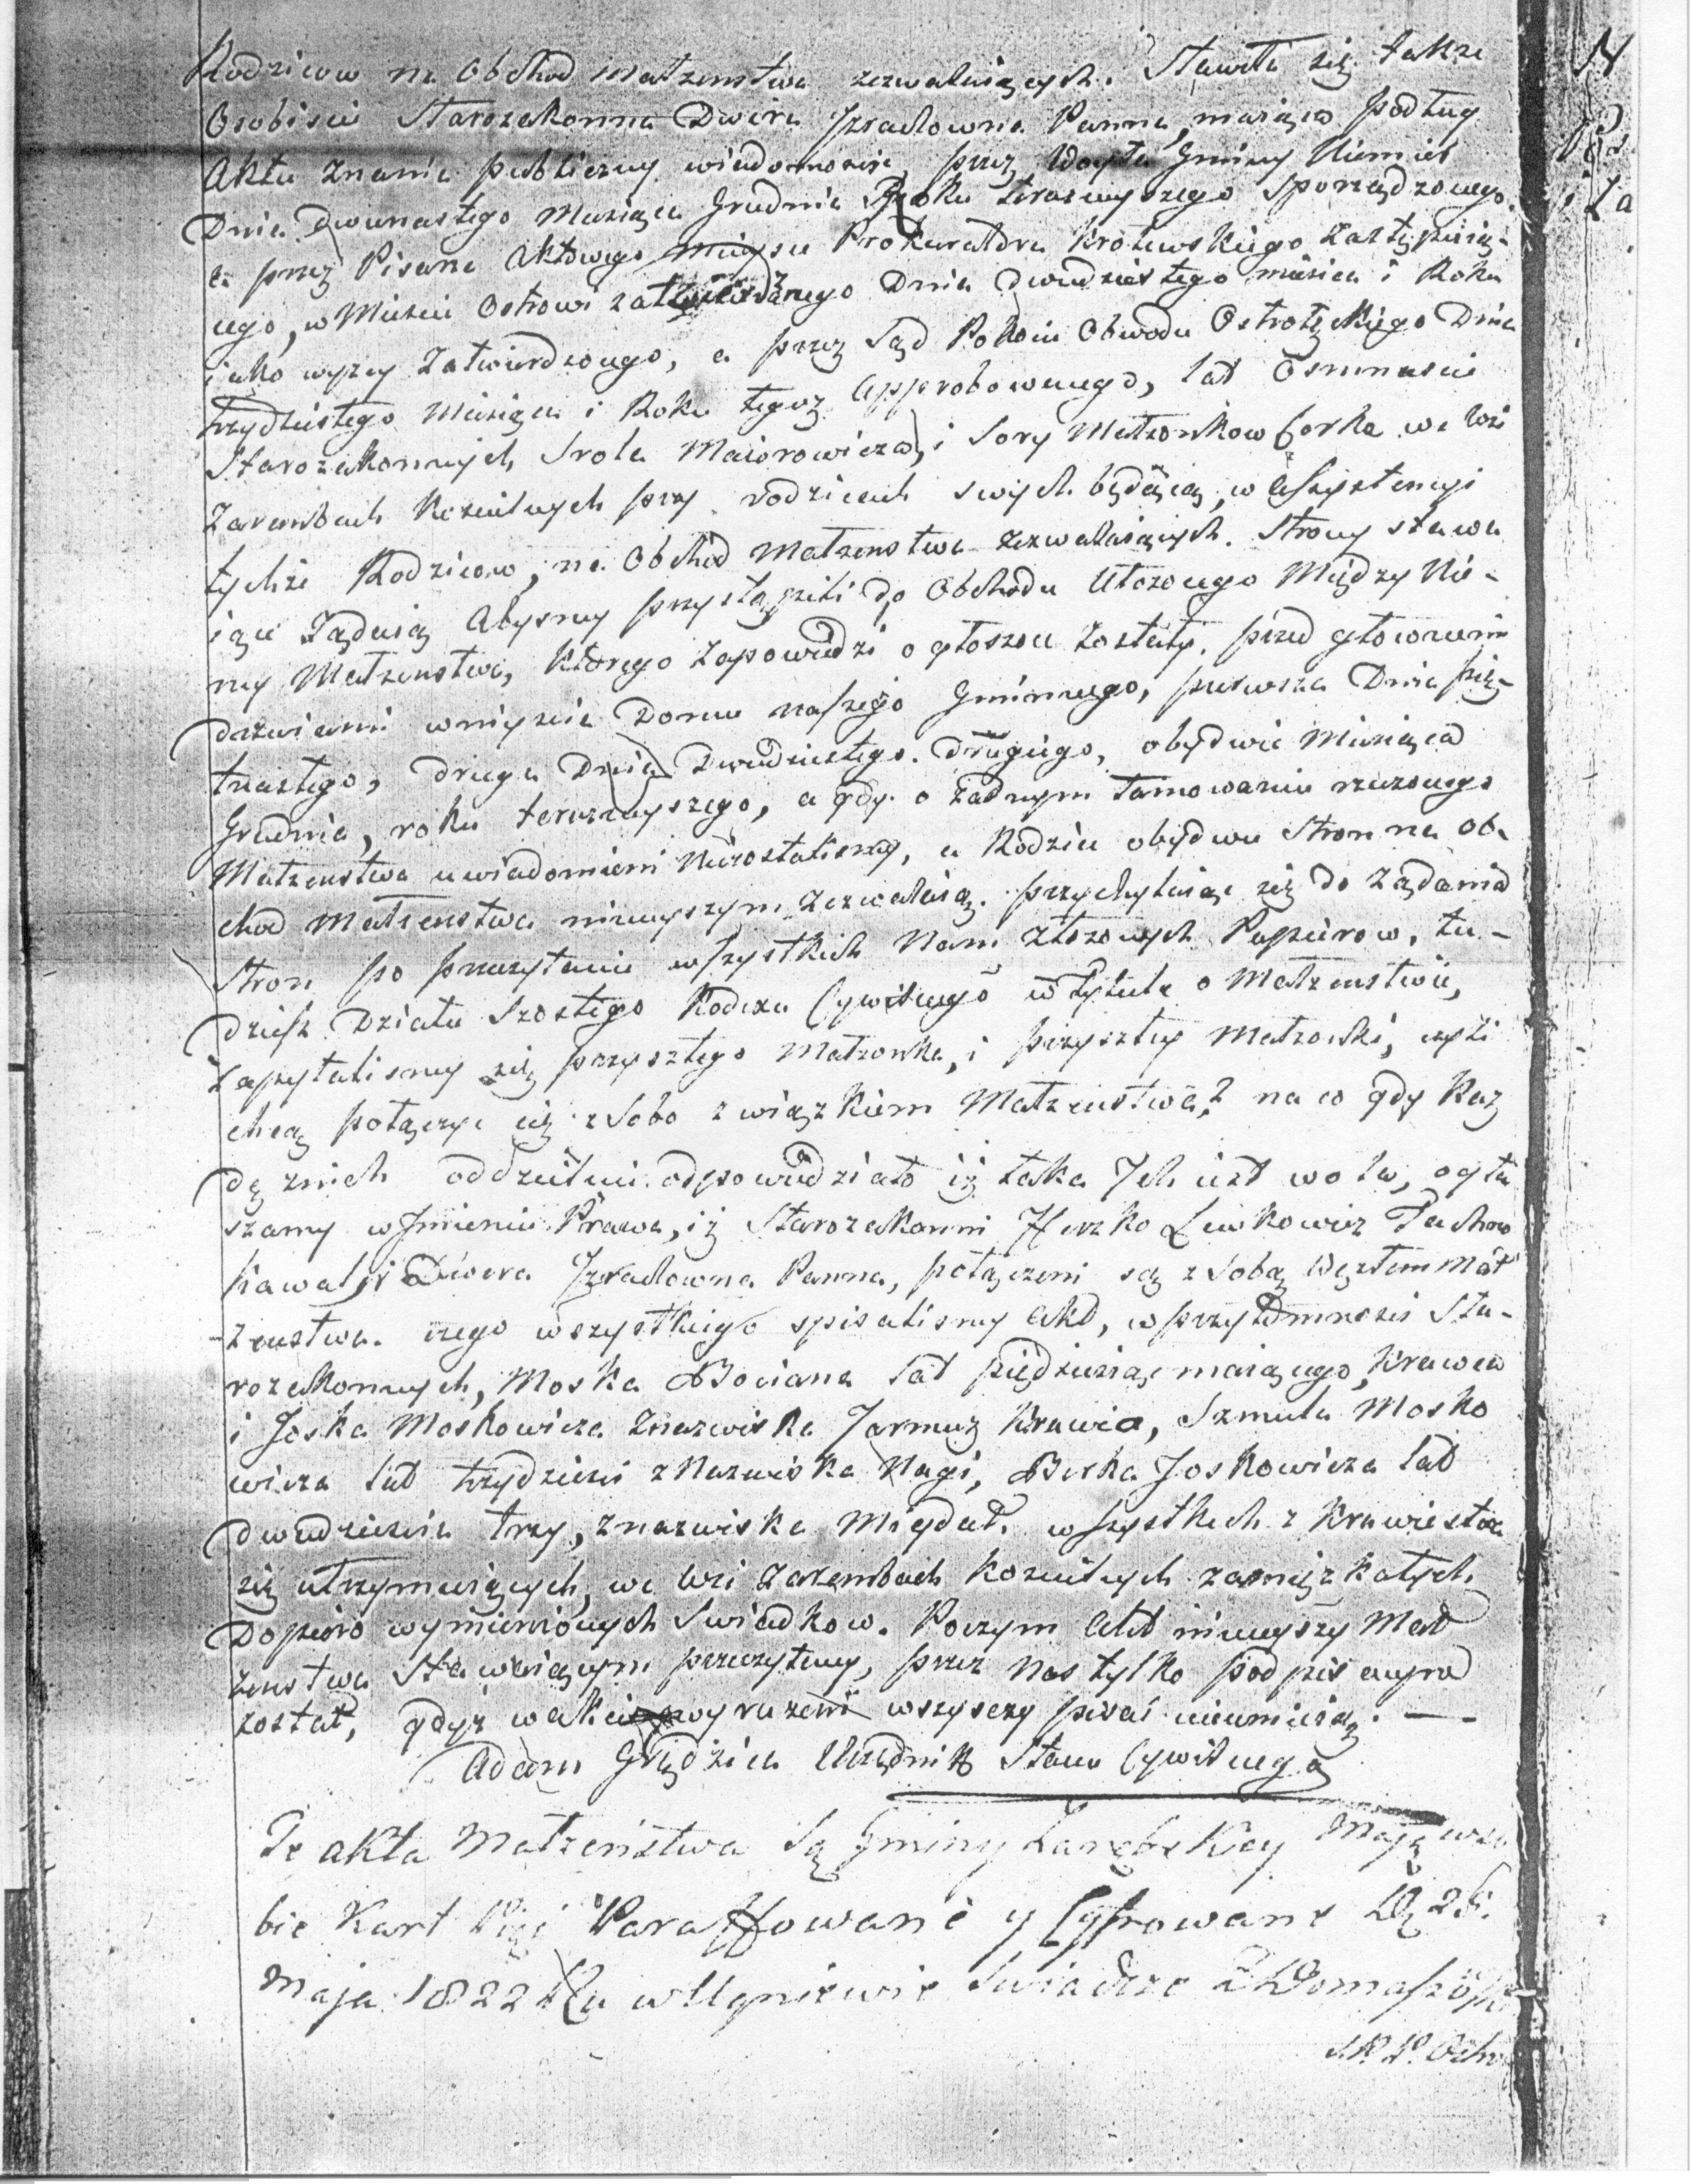 Rodzicow na Obchod małzenstwa zezwalaiących. Stawiła się także
Osobiscie Starozakonna Dwera Jzraelowna Panna, maiąca podług
Aktu Znania publiczney wiadomości, przez Woyta Gminy
Dnia Dwunastego Miesiąca Grudnia Roku teraznieyszego sporządzonego,
a przez Pisarza Aktowego mieysce Prokuratora Krolewskiego zastępuiącego
cego, w Miescie Ostrowi Dnia Dwudziestego miesica i Roku
iako wyzey Zatwierdzonego, a przez Sąd Pokoiu Obwodu Ostrołęckiego Dnia
trzydziestego Miesiąca i Roku tegoz Approbowanego, lat Osmnascie
Starozakonnych Srola Maiorowicza, i Sory Małzonkow Corka we Wsi
Zarembach Koscielnych przy rodzicach swych będąca, w Assystencyi
tychze Rodzicow, na Obchod Małzenstwa zezwalaiących. Strony stawa
iące Żądaią Abysmy przystąpili do Obchodu Ułozonego Między Nie-
my Małzenstwa, Ktorego Zapowiedzi ogłoszone Zostały, przed głownemi
drzwiami wniyscia Domu naszego Gminnego, pierwsza Dnia pię-
tnastego, druga Dnia Dwudziestego Drugiego, obydwie Miesiąca
Grudnia, roku teraznieyszego, a gdy o żadnym tamowaniu rzeczonego
Małzenstwa uwiadomieni Niezostalismy, a Rodzice obydwu Stron na Ob-
chod Małzenstwa ninieyszym zezwalaią. przychylaiąc się do Żądania
Stron po przeczytaniu wszystkich Nam złozonych Papierow, tu-
dziesz Działu Szostego Kodexu Cywilnego w Tytule o Małzenstwie,
Zapytalismy się przyszłego Małzonka, i przyszłey Małzonki, czyli
chcą połączyc się z Sobo związkiem Małzenstwa? na co gdy Kaz
de znich oddzielnie odpowiedziało iż taka Jch iest wola, ogła
szamy w Jmieniu Prawa, iż Starozakonni Herzko Lewkowicz
kawal, i Dwera Jzraelowna Panna, połączeni są z Sobą Węzłem Mał
zenstwa. czego wszystkiego spisalismy Akt, w przytomności Sta-
rozakonnych, Moska Bociana lat piędziesiąt maiącego, Krawca
i Joska Moskowicza Znazwiska Jarmuz Krawca, Szmula Mosko
wicza lat trzydziesci z Nazwiska Nagi, Berka Joskowicza lat
dwadziescia trzy, znazwiska Migdał, wszystkich z Krawiestwa
się utrzymuiących, we Wsi Zarembach Koscielnych zamięszkałych
Dopiero wymienionych Swiadkow. Poczym Akt ninieyszy Mał
zenstwa Stawaiącym przeczytany, przez Nas tylko podpisanym
został, gdyż w akcie wyrazeni wszyscy pisać nieumieią. —
Adam Grędzica Urzędnik Stanu Cywilnego
Te akta Małżeństwa są Gminy Zarębskiey Mają w so
bie Kart Pięć Paraffowane y Cyfrowane D 25.
Maja 1822 Ru w Ugniewie Swiadcze